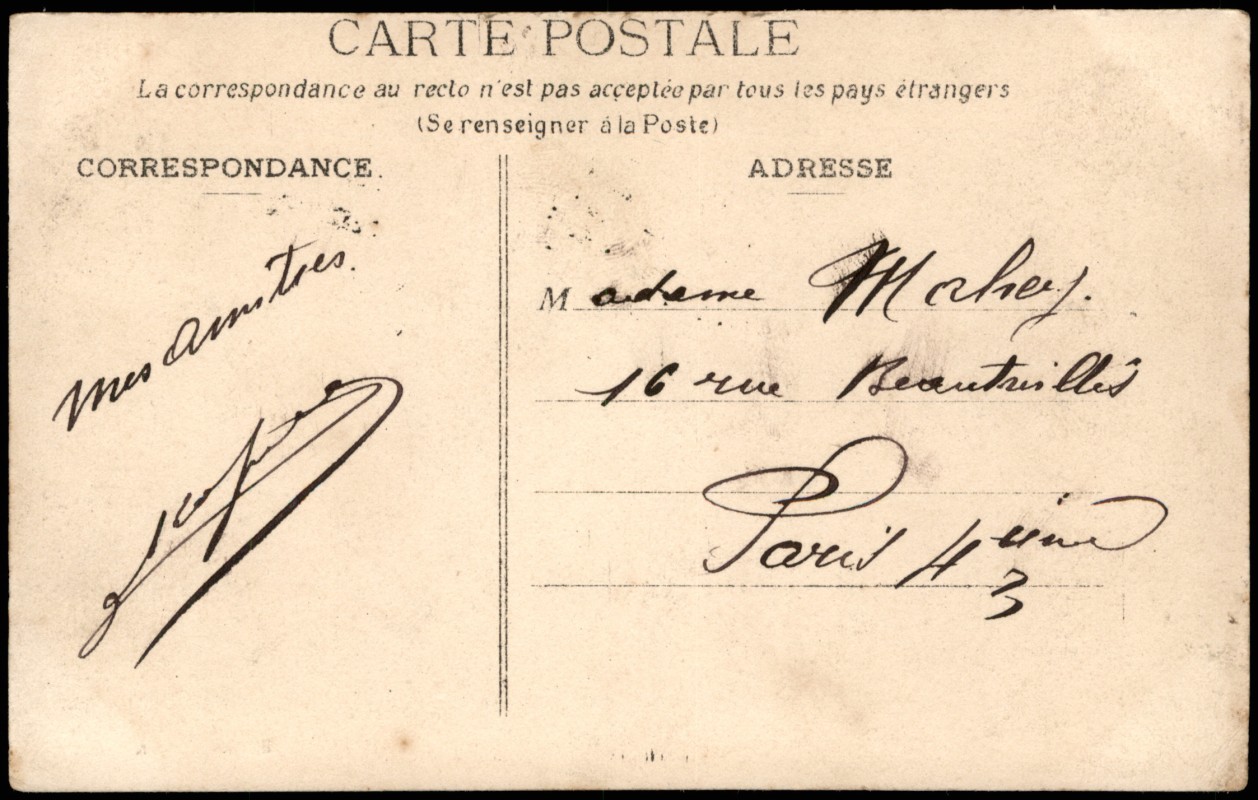 CARTE POSTALE
La correspondance au recto n'est pas acceptée par tous les pays étrangers
(Se renseigner á la Poste)
CORRESPONDANCE.
ADRESSE
mes amitiés.
Madame
16 rue Beautreillis
Paris 4ième